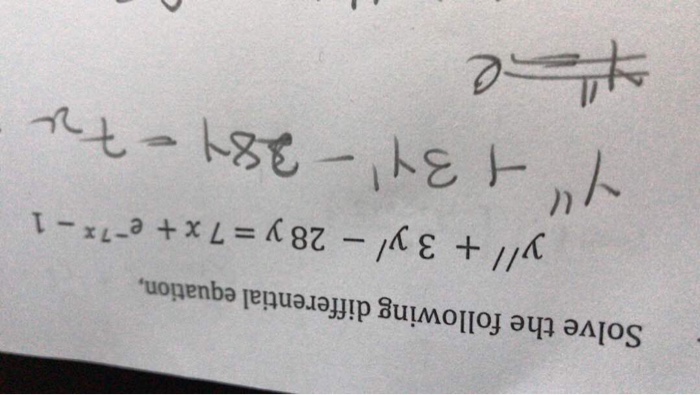 Solve the following differential equation,
y'' + 3 y' − 28 y = 7 x + e^−7x − 1
y'' + 3y' − 38y = 7x